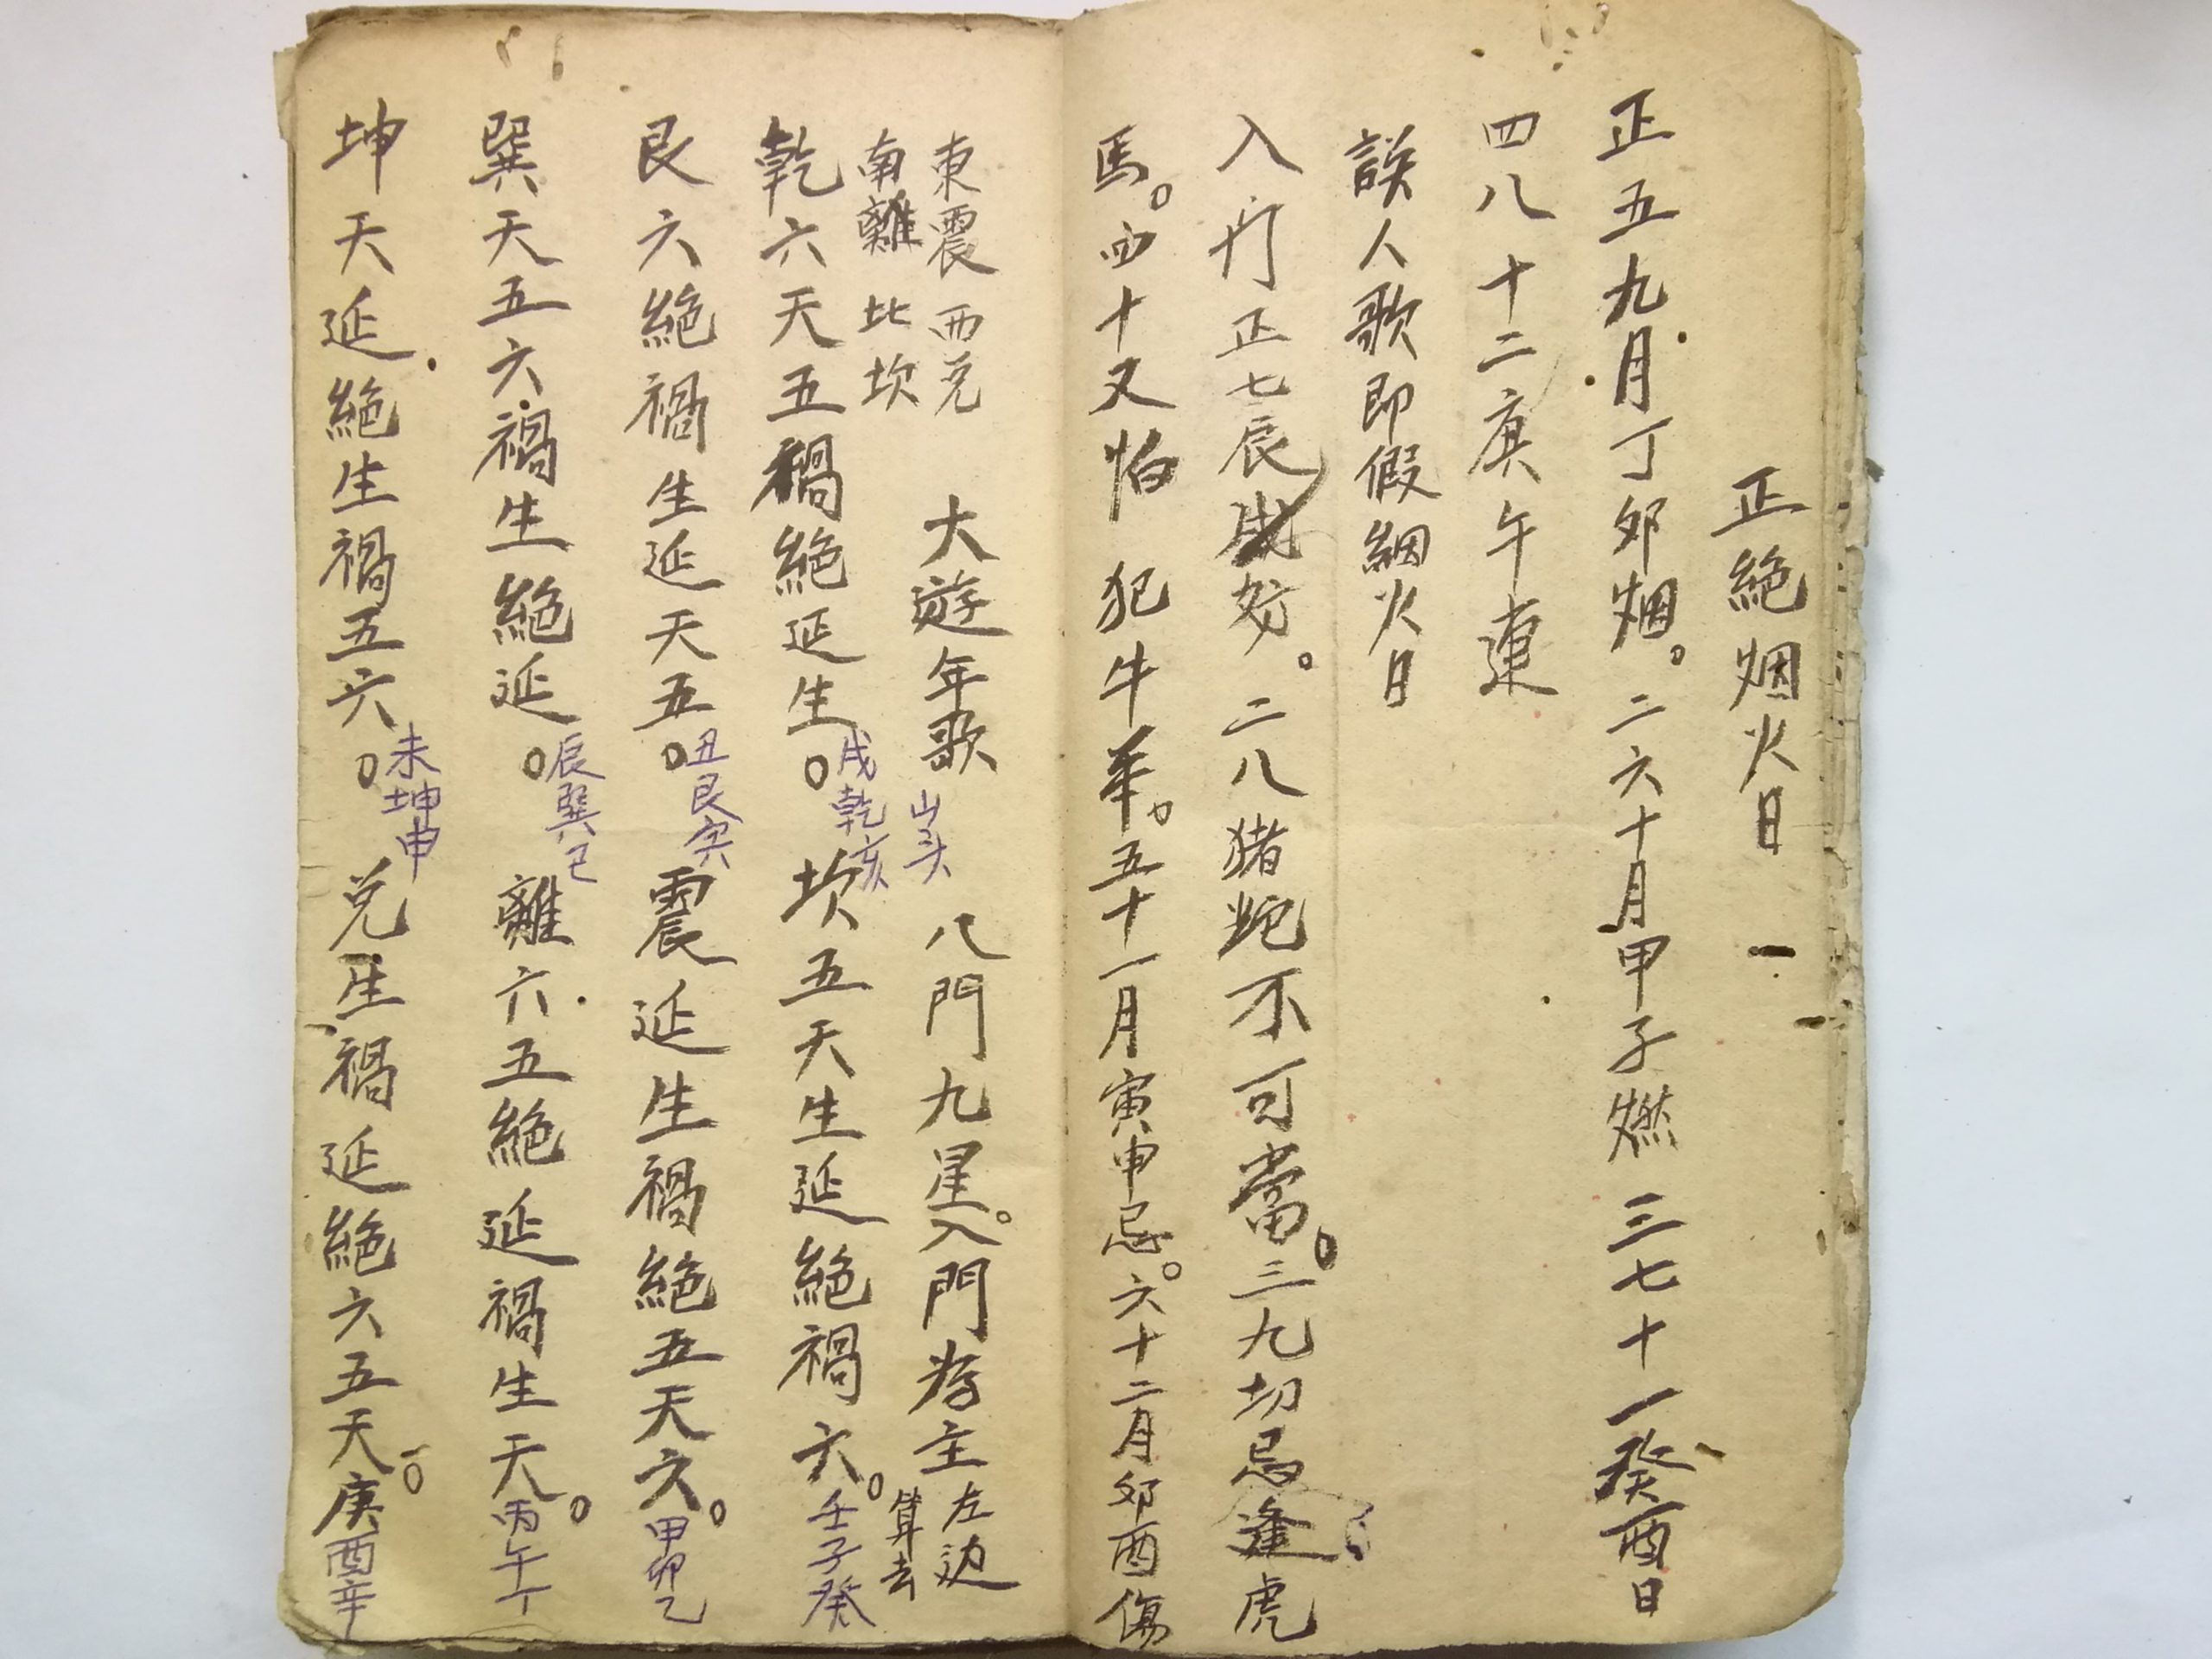 正絕烟火日
正五九月丁卯烟。二六十月甲子燃三七十一癸酉日
四八十二庚午連
誤人歌即假絪火日
入行正七辰戌妨。二八猪蛇不可當。三九切忌逢虎
馬。四十又怕犯牛羊。五十一月寅申忌。六十二月卯酉傷
東震西兌
南離北坎
大遊年歌山头八門九星。入門为主左边
算去
乾六天五禍絕延生。戌乾亥坎五天生延絕禍六。壬子癸
艮六絕禍生延天五。丑艮寅震延生禍絕五天六。甲卯乙
巽天五六禍生絕延。辰巽己離六五絕延禍生天。丙午丁
坤天延絕生禍五六。未坤申兌生禍延絕六五天。庚酉辛